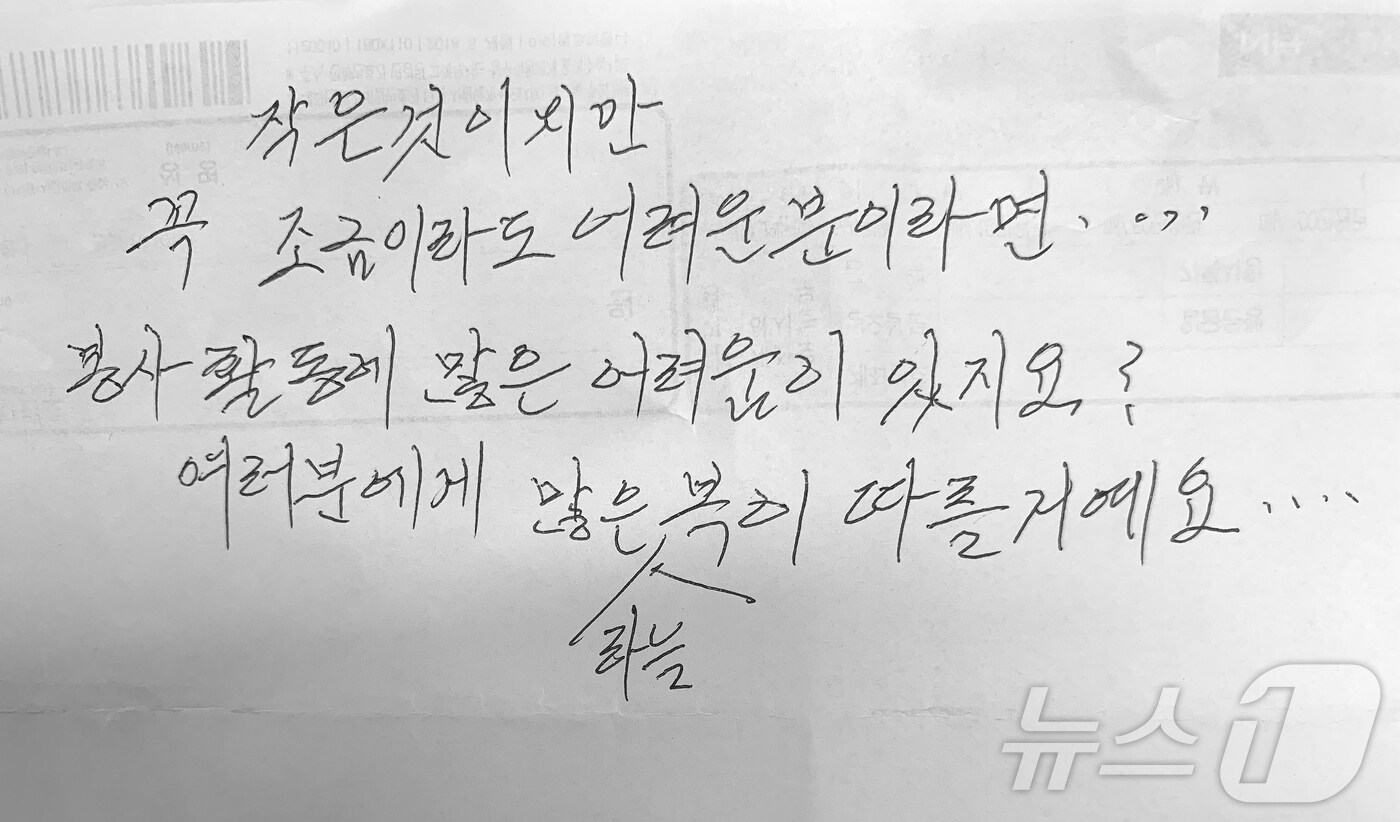 작은것이지만
꼭 조금이라도 어려운분이라면.....
봉사활동에 많은 어려움이 있지요?
여러분에게 많은복이 따를거예요.....
하늘
뉴스1